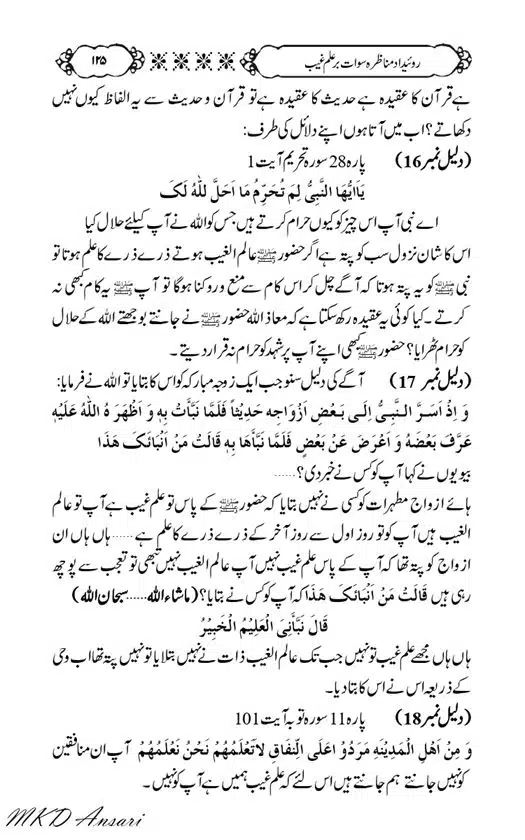 روئیداد مناظرہ سوات بر علم غیب
۱۲۵
ہے قرآن کا عقیدہ ہے حدیث کا عقیدہ ہے تو قرآن و حدیث سے یہ الفاظ کیوں نہیں
دکھاتے؟ اب میں آتا ہوں اپنے دلائل کی طرف:
(دلیل نمبر16) پارہ 28 سورہ تحریم آیت 1
یَااَیُّهَا النَّبِیُّ لِمَ تُحَرِّمُ مَا اَحَلَّ اللّٰهُ لَکَ
اے نبی آپ اس چیز کو کیوں حرام کرتے ہیں جس کو اللہ نے آپ کیلئے حلال کیا
اس کا شان نزول سب کو پتہ ہے اگر حضور ﷺ عالم الغیب ہوتے ذرے ذرے کا علم ہوتا تو
نبی ﷺ کو یہ پتہ ہوتا کہ آگے چل کر اس کام سے منع و روکنا ہوگا تو آپ ﷺ یہ کام کبھی نہ
کرتے ۔ کیا کوئی یہ عقیدہ رکھ سکتا ہے کہ معاذ اللہ حضور ﷺ نے جانتے بوجھتے اللہ کے حلال
کو حرام ٹھرایا؟ حضور ﷺ کبھی اپنے آپ پر شہد کو حرام نہ قرار دیتے ۔
(دلیل نمبر 17) آگے کی دلیل سنو جب ایک زوجہ مبارکہ کو اس کا بتایا تو اللہ نے فرمایا:
وَ اِذْ اَسَرَّ النَّبِیُّ اِلٰی بَعْضِ اَزْوَاجِه حَدِیْثاً فَلَمَّا نَبَّأَتْ بِهٖ وَ اَظْهَرَ هُ اللّٰهُ عَلَیْهِ
عَرَّفَ بَعْضَهٗ وَ اَعْرَضَ عَنْ بَعْضٍ فَلَمَّا نَبَّأَهَا بِهٖ قَالَتْ مَنْ اَنْبَائَکَ هَذَا
بیویوں نے کہا آپ کو کس نے خبر دی؟......
ہائے ازواج مطہرات کو کسی نے نہیں بتایا کہ حضور ﷺ کے پاس تو علم غیب ہے آپ تو عالم
الغیب ہیں آپ کو تو روز اول سے روز آخر کے ذرے ذرے کا علم ہے ...... ہاں ہاں ان
ازواج کو پتہ تھا کہ آپ کے پاس علم غیب نہیں آپ عالم الغیب نہیں تبھی تو تعجب سے پوچھ
رہی ہیں قَالَتْ مَنْ اَنْبَائَکَ هَذَا کہ آپ کو کس نے بتایا؟ (ماشاء اللہ......سبحان اللہ)
قَالَ نَبَّأَنِیَ الْعَلِیْمُ الْخَبِیْرُ
ہاں ہاں مجھے علم غیب تو نہیں جب تک عالم الغیب ذات نے نہیں بتلایا تو نہیں پتہ تھا اب وحی
کے ذریعہ اس نے اس کا بتا دیا۔
(دلیل نمبر18) پارہ 11 سورہ توبہ آیت 101
وَ مِنْ اَهْلِ الْمَدِیْنَهِ مَرَدُوْ اعَلَی النِّفَاقِ لَاتَعْلَمُهُمْ نَحْنُ نَعْلَمُهُمْ آپ ان منافقین
کو نہیں جانتے ہم جانتے ہیں اس لئے کہ علم غیب ہمیں ہے آپ کو نہیں ۔
MKD Ansari